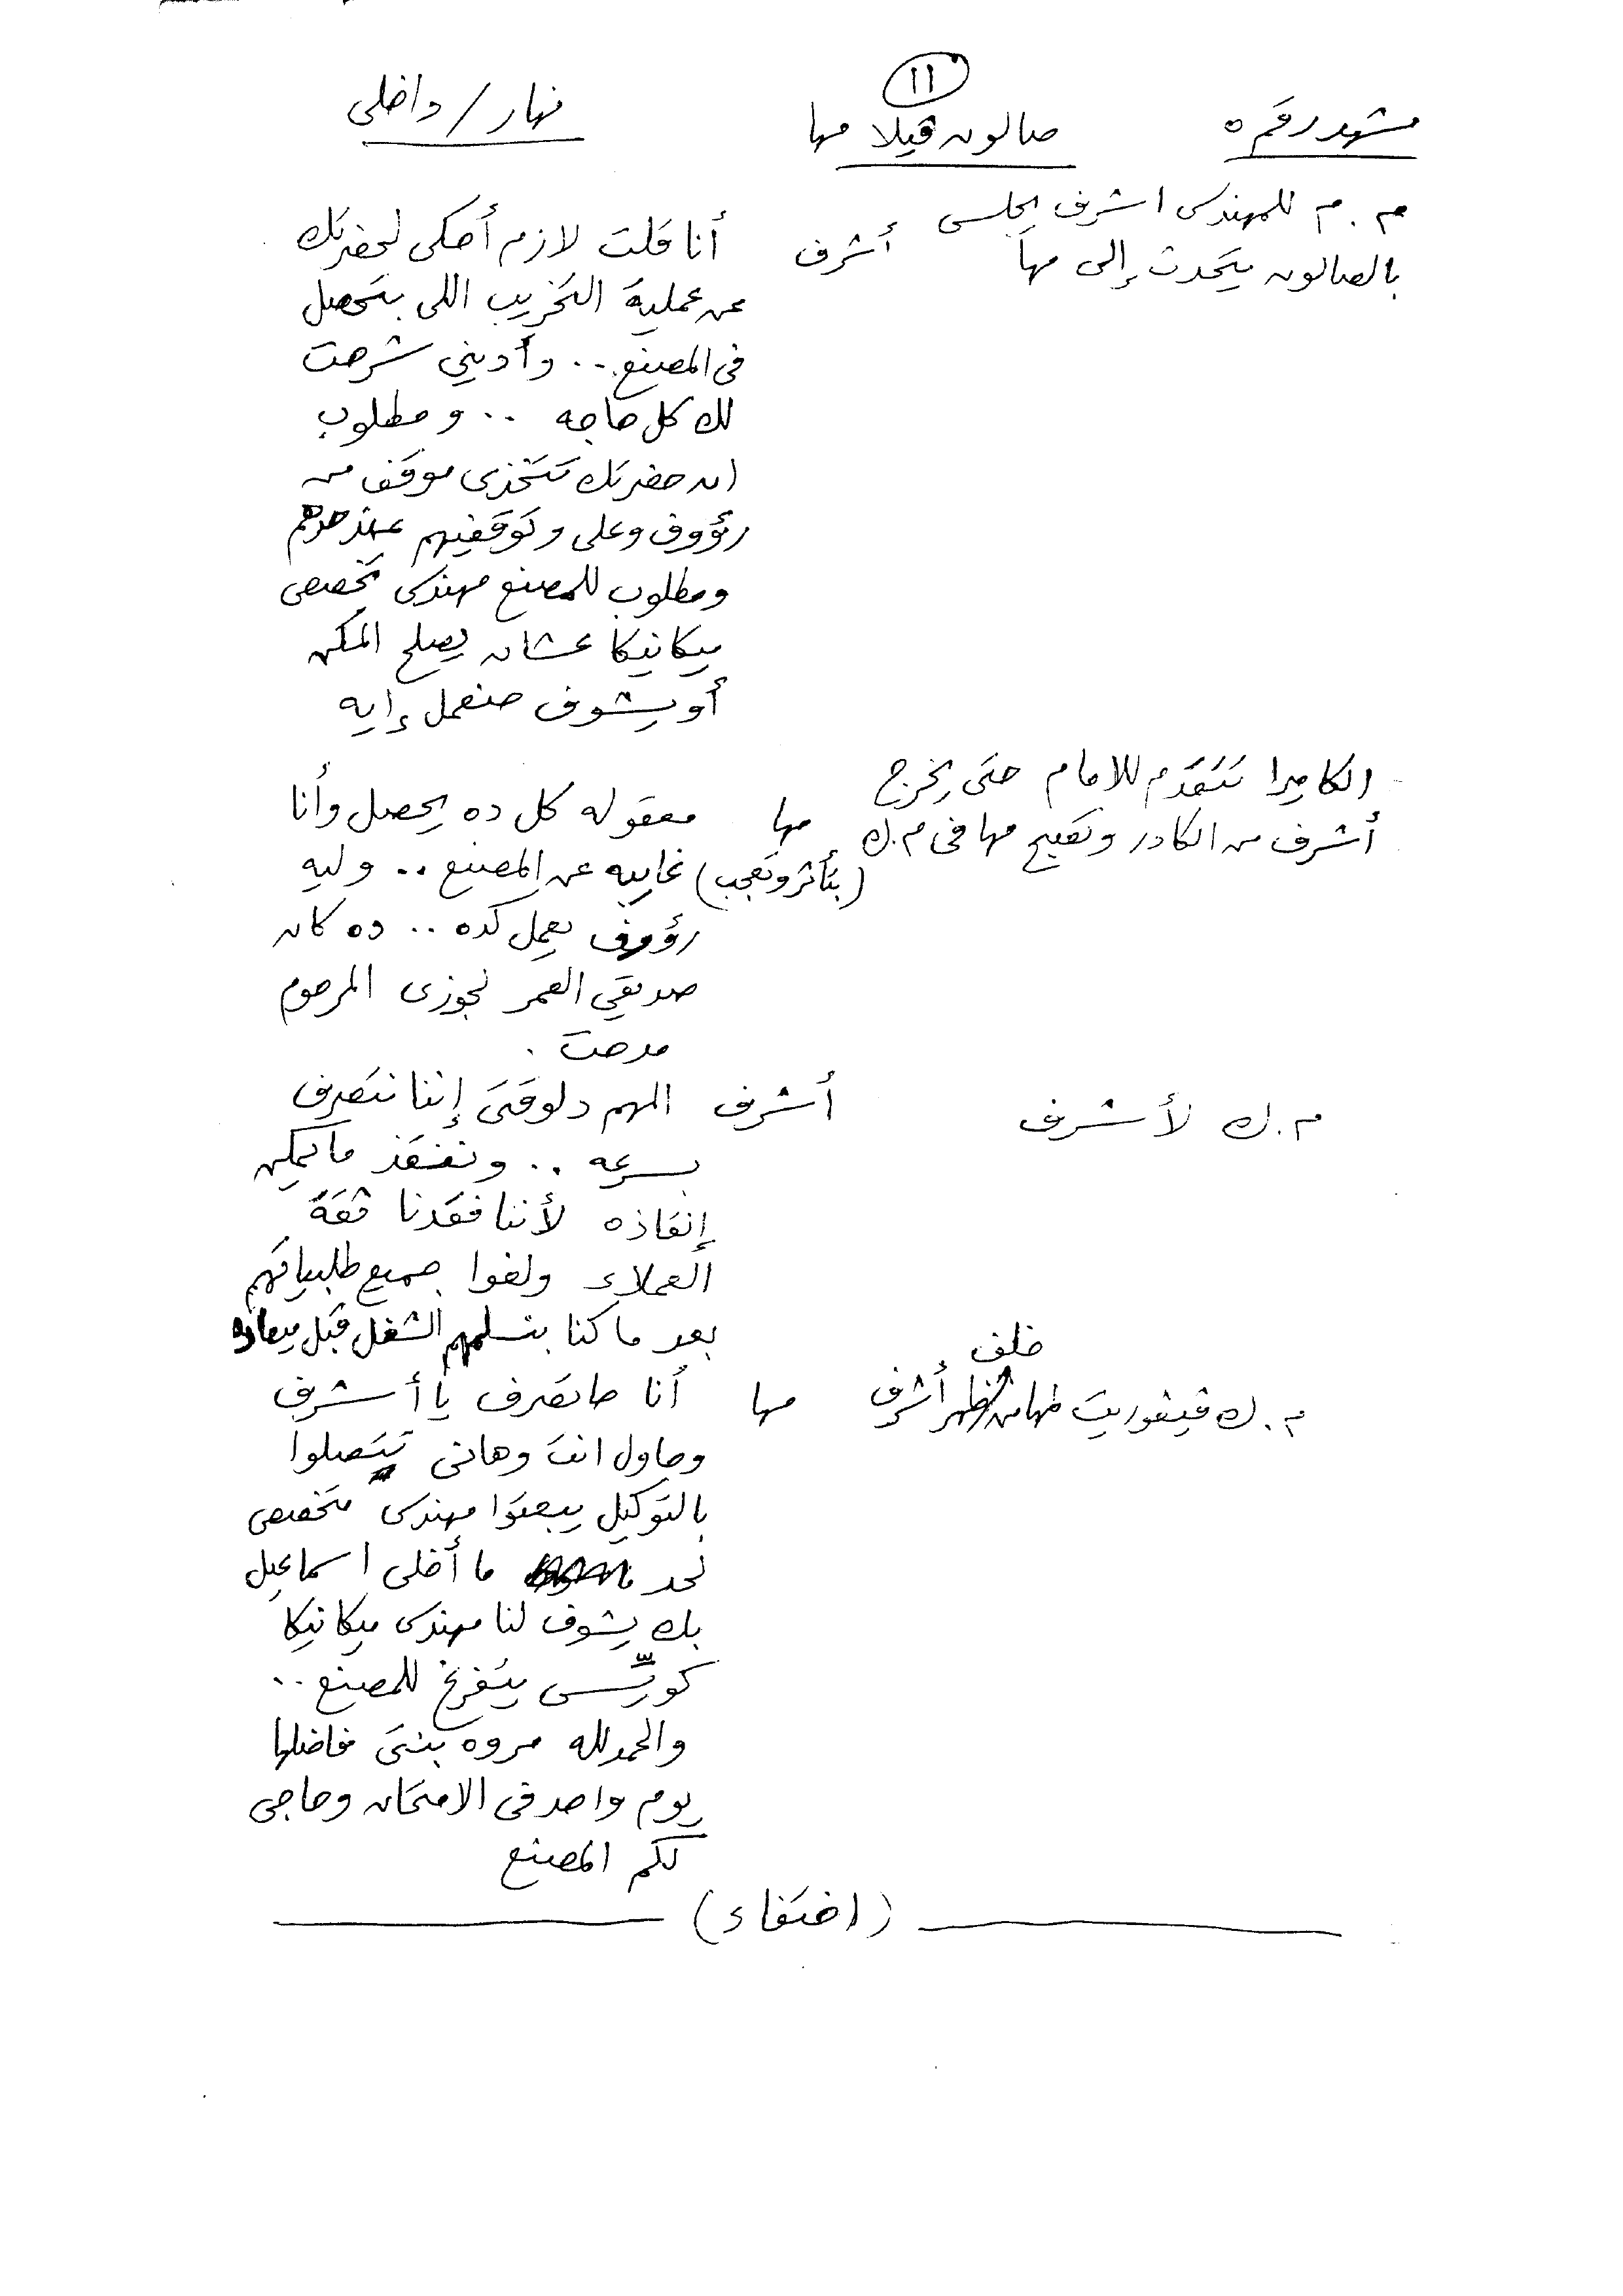 ١١
مشهد رقم ٥ صالون ڤيلا مها نهار / داخلى
م . م للمهندس اشرف يجلس
بالصالون يتحدث إلى مها
أشرف أنا قلت لازم أحكى لحضرتك
عن عملية التخريب اللى بتحصل
فى المصنع .. وأديني شرحت
لك كل حاجه .. و مطلوب
ان حضرتك تتخذى موقف من
رؤوف وعلى وتوقفيهم عند حدهم
ومطلوب للمصنع مهندس تخصص
ميكانيكا عشان يصلح المكن
أو يشوف حنعمل إيه
الكاميرا تتقدم للامام حتى يخرج
أشرف من الكادر وتصبح مها فى م.ك
مها معقوله كل ده يحصل وأنا
(بتأثر وتعجب) غايبه عن المصنع .. وليه
رؤوف يعمل كده .. ده كان
صديقي العمر لجوزى المرحوم
مدحت .
م . ك لأشرف
أشرف المهم دلوقتى إننا نتصرف
بسرعه .. وننقذ ما يمكن
إنقاذه لأننا فقدنا ثقة
العملاء ولغوا جميع طلبياتهم
بعد ما كنا بنسلمهم الشغل قبل ميعاده
م . ك ڤيڤوريت لمها من خلف ظهر أشرف
مها أنا حاتصرف يا أشرف
وحاول انت وهانى تتصلوا
بالتوكيل يبعتوا مهندس متخصص
لحد ما أخلى اسماعيل
بك يشوف لنا مهندس ميكانيكا
كويِّس يتفرغ للمصنع ..
والحمد لله مروه بنتى فاضلها
يوم واحد فى الامتحان وحاجى
لكم المصنع
(اختفاء)